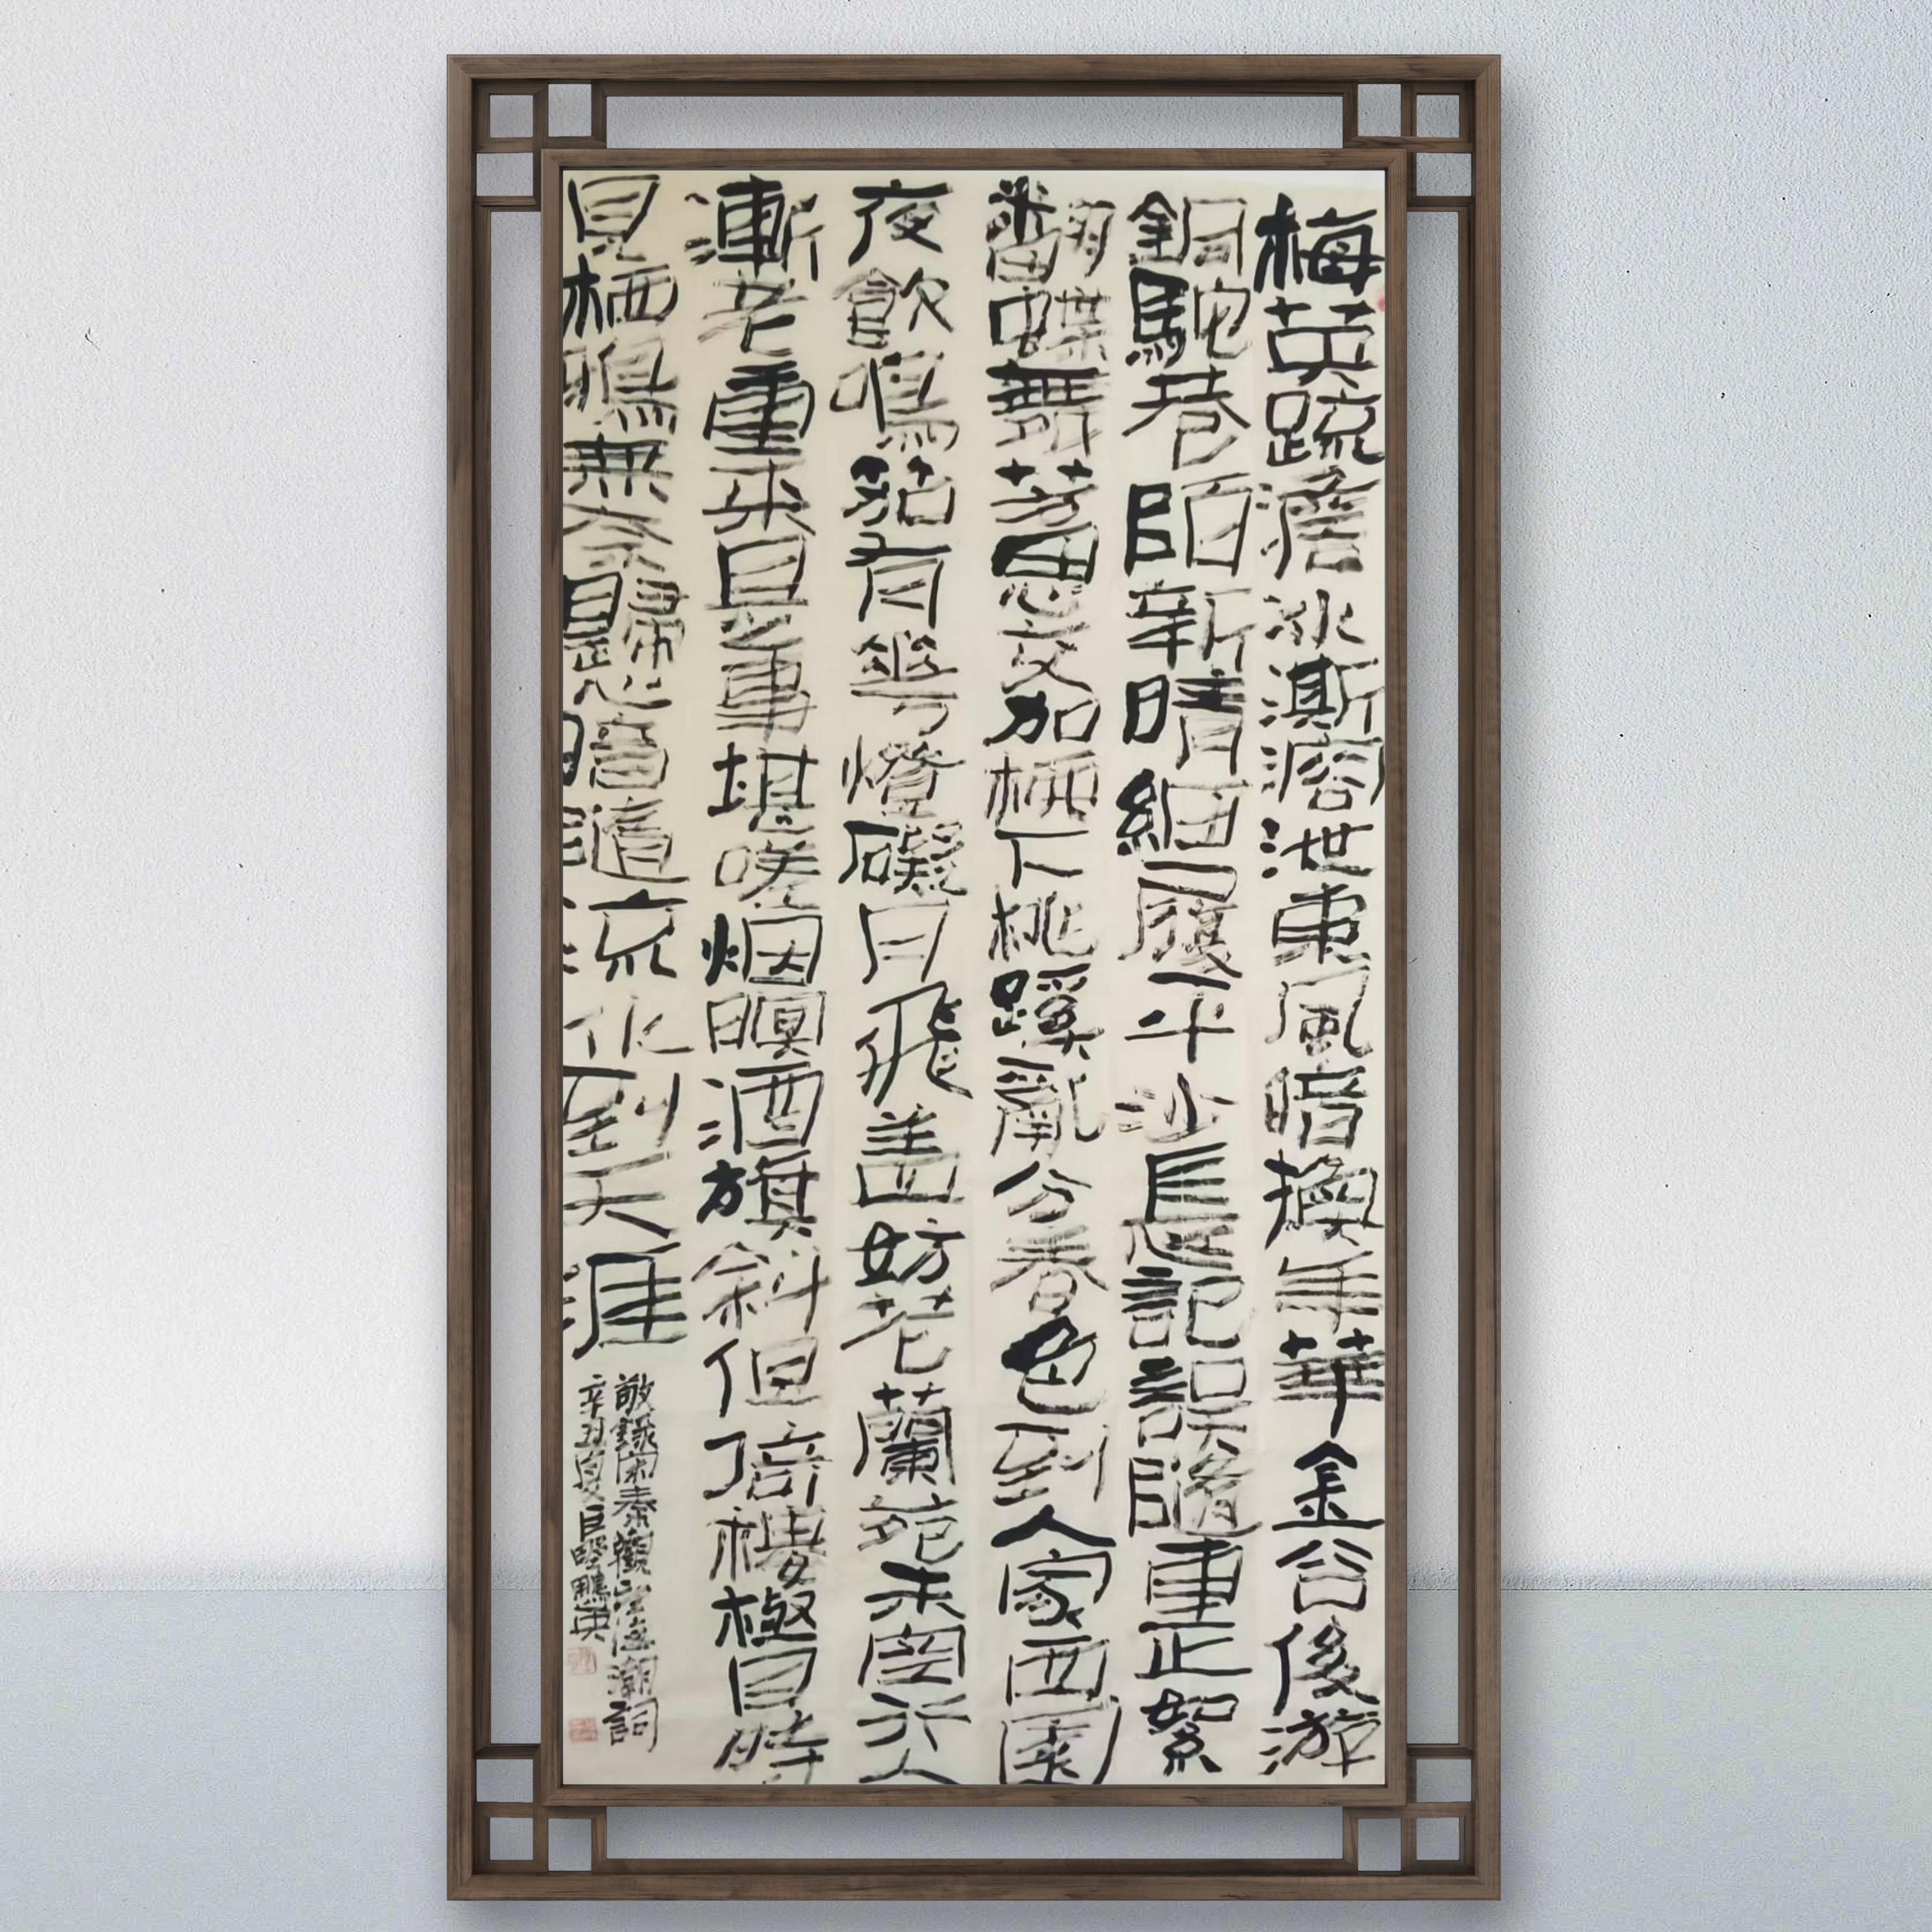 梅英疏澹冰澌溶泄東風暗換年華金谷俊游
銅駝巷陌新晴細履平沙長記誤隨車正絮
翻蝶舞芳思交加柳下桃蹊亂分春色到人家西園
夜飲鳴笳有華燈礙月飛蓋妨花蘭苑未空行人
漸老重來是事堪嗟烟暝酒旗斜但倚樓極目時
見栖鴉無奈歸心暗隨流水到天涯
敬錄宋秦觀望海潮詞
辛丑夏巨野鵬英